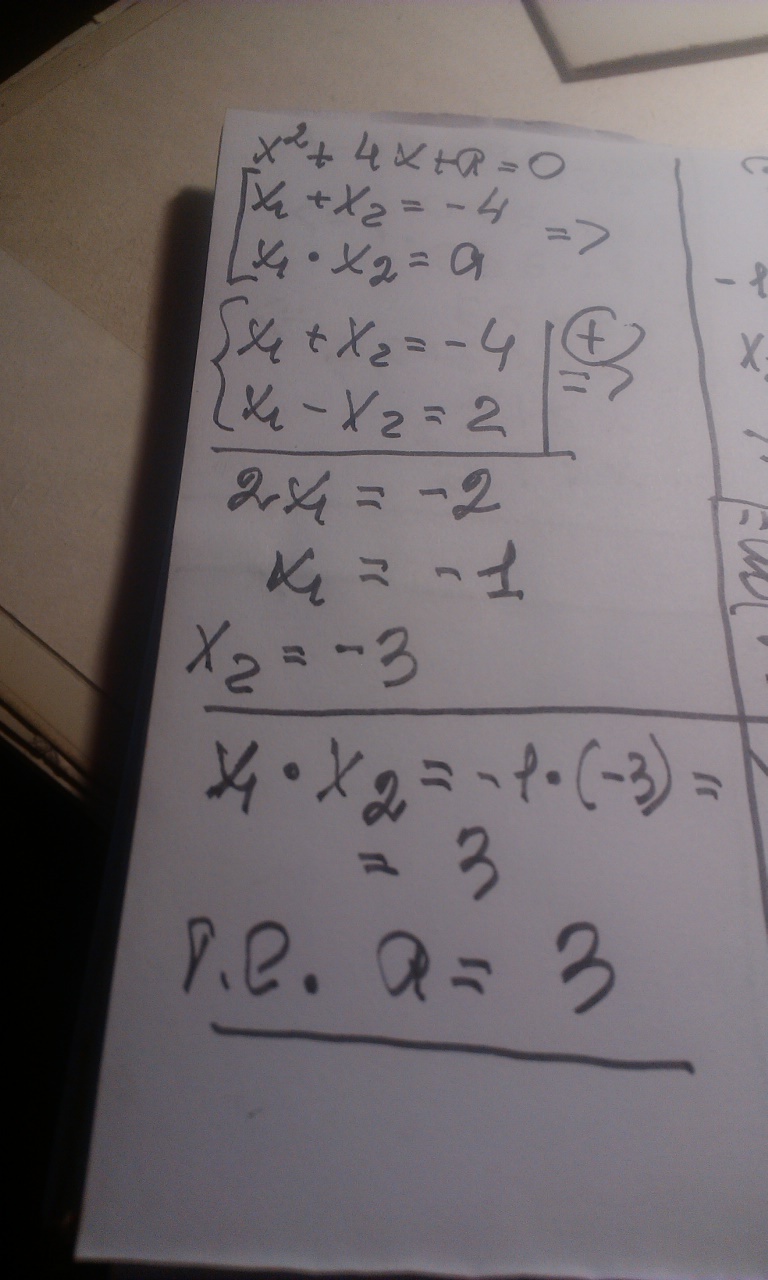 x² + 4x + a = 0
[ x₁ + x₂ = -4
x₁ · x₂ = a =>
{ x₁ + x₂ = -4 | ⊕
x₁ - x₂ = 2 | =>
2x₁ = -2
x₁ = -1
x₂ = -3
x₁ · x₂ = -1 · (-3) =
= 3
т.е. a = 3